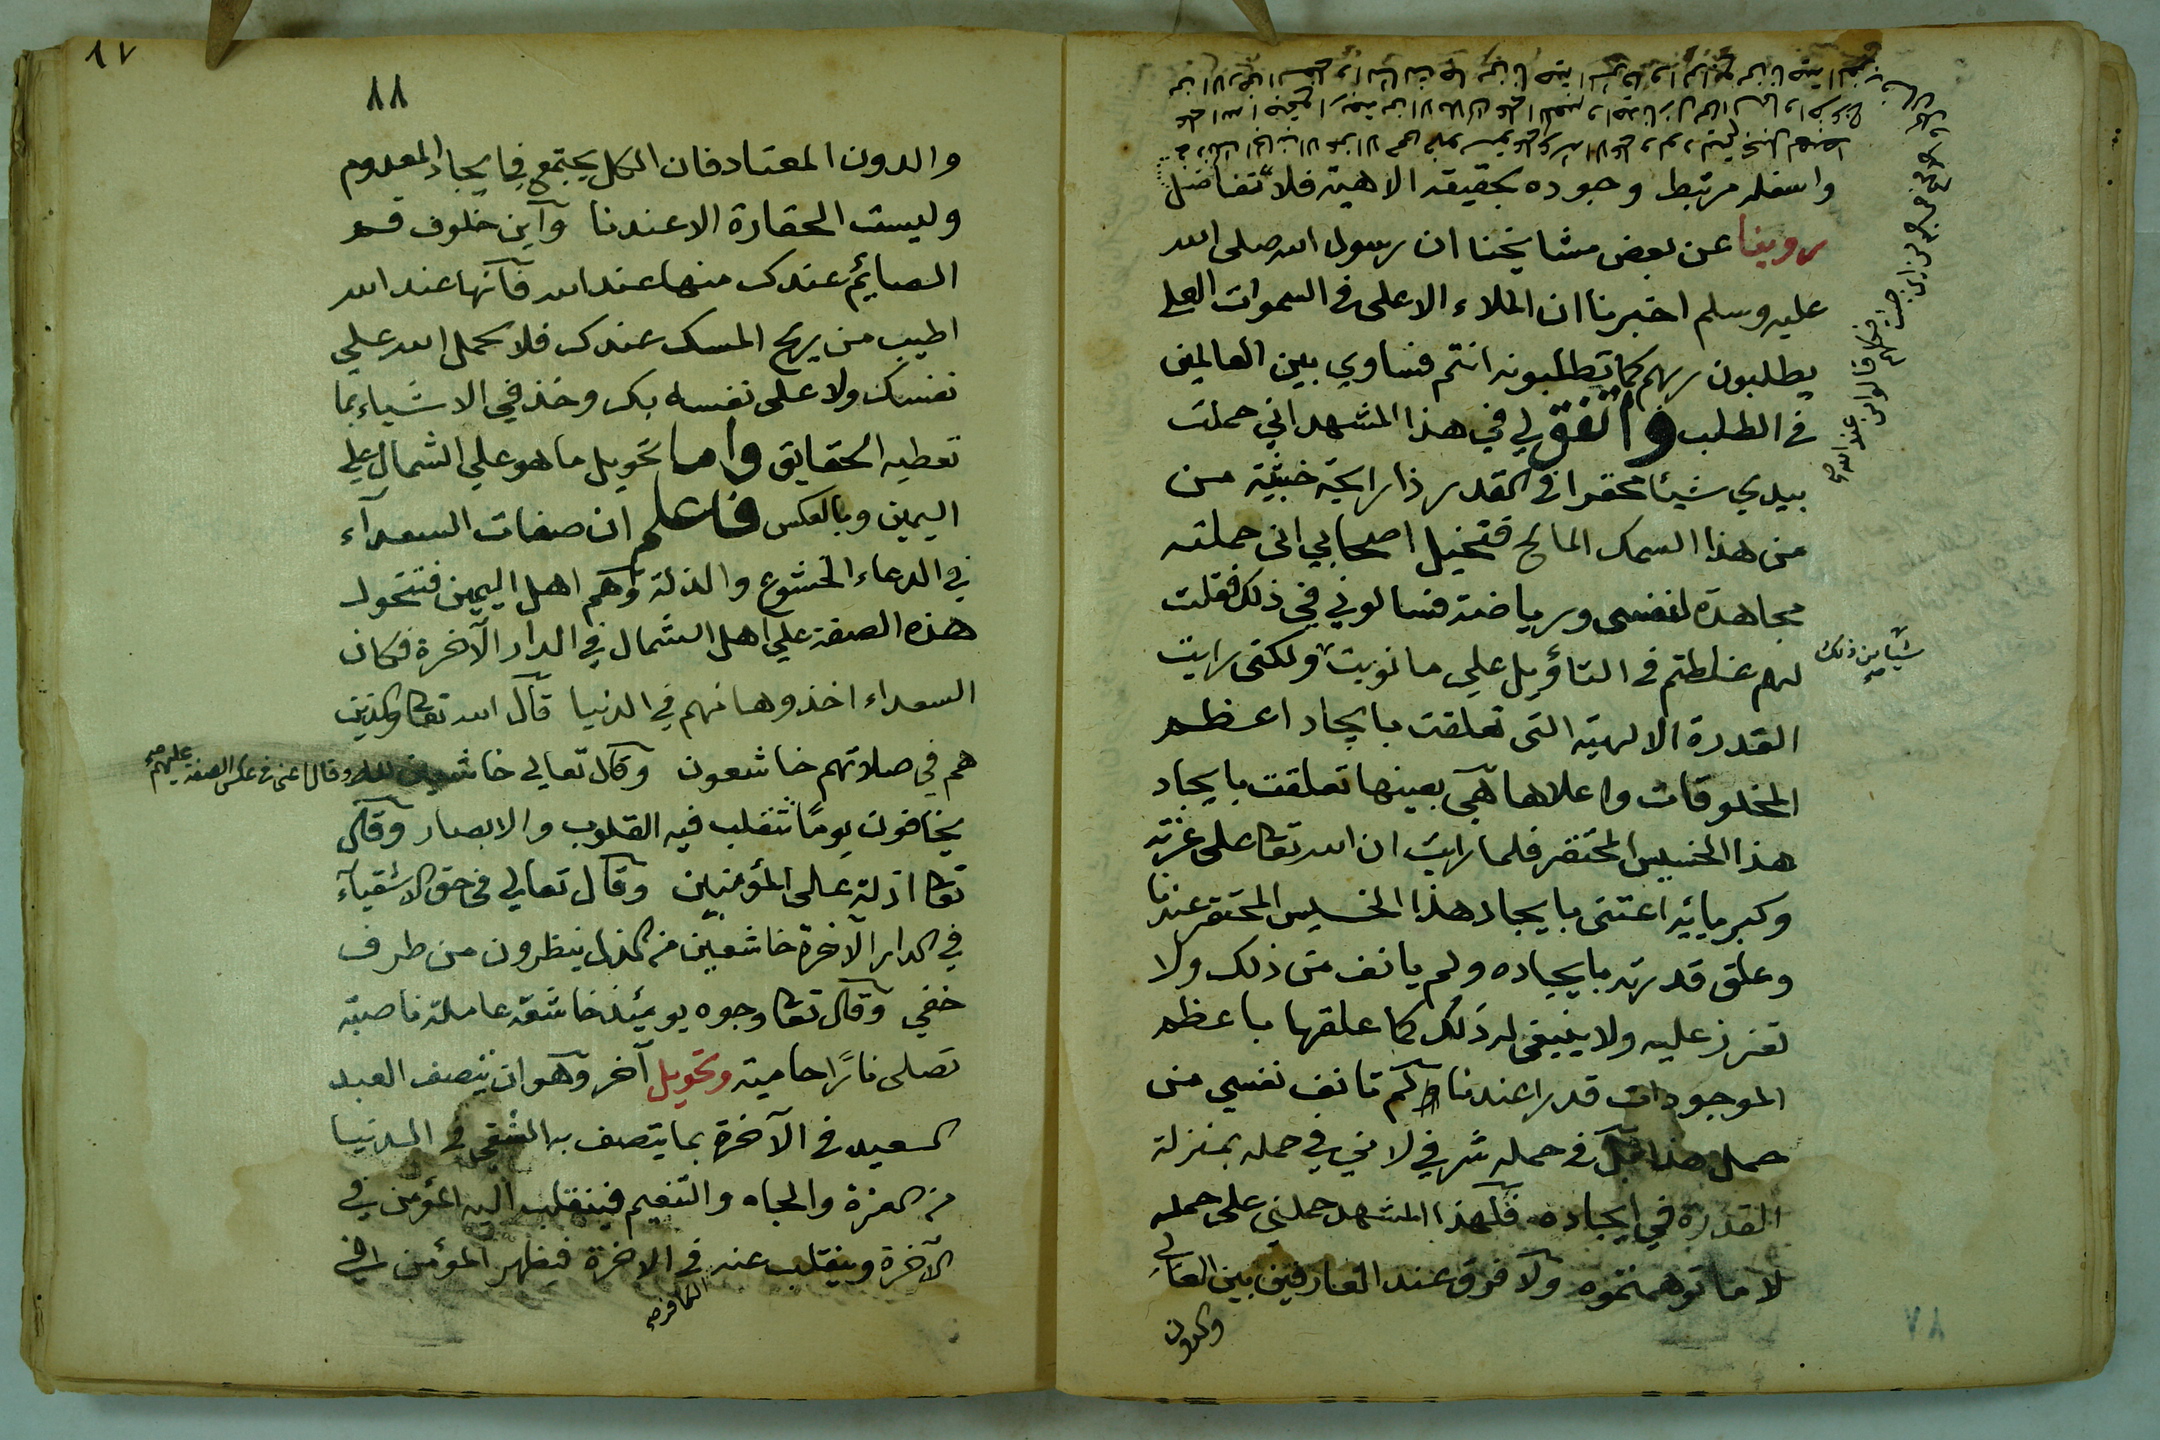 واسفله مرتبط وجوده بحقيقة الاهية فلا تفاضل
روينا عن بعض مشايخنا ان رسول الله صلى الله
عليه وسلم اخبرنا ان الملاء الاعلى في السموات العلى
يطلبون ربهم كما تطلبونه انتم فساوي بين العالمين
في الطلب واتفق لي في هذا المشهد اني حملت
بيدي شيئا محقرا في القدر ذا رايحة خبيثة من
من هذا السمك المالح فتخيل اصحابي انى حملته
مجاهدة لنفسى ورياضة فسالوني في ذلك فقلت
لهم غلطتم في التاؤيل علي ما نويت ولكنى رايت
شيا من ذلك
القدرة الالهية التى تعلقت بايجاد اعظم
المخلوقات واعلاها هي بعينها تعلقت بايجاد
هذا الخسيس المحتقر فلما رايت ان الله تعا على عزته
وكبريائه اعتنى بايجاد هذا الخسيس المحتقر عندنا
وعلق قدرته بايجاده ولم يانف من ذلك ولا
تعزز عليه ولا ينبغى له ذلك كما علقها باعظم
الموجودات قدرا عندنا كم تانف نفسي من
حمل هذا بل في حمله شرفي لاني في حمله بمنزلة
القدرة في ايجاده فلهذا المشهد حملني على حمله
لا ما توهمتموه ولا فرق عند العارفين بين العالي
والدون
٧٨
٨٧
٨٨
والدون المعتاد فان الكل يجتمع في ايجاد المعدوم
وليست الحقارة الا عندنا وآين خلوف فم
الصايم عندك منها عند الله فآنها عند الله
اطيب من ريح المسك عندك فلا تحمل الله علي
نفسك ولا على نفسه بك وخذ في الاشياء بما
تعطيه الحقايق واما تحويل ما هو علي الشمال علي
اليمين وبالعكس فاعلم ان صفات السعدآء
في الدعاء الخشوع والذلة وهم اهل اليمين فتتحول
هذه الصفة علي اهل الشمال في الدار الآخرة فكان
السعداء اخذوها منهم في الدنيا قال الله تعا والذين
هم في صلاتهم خاشعون وقال تعالي خاشعين لله وقال اعنى في عكس الصفة عليهم صح
يخافون يومًا تتقلب فيه القلوب والابصار وقال
تعا اذلة على المؤمنين وقال تعالي في حق الاشقيآء
في الدار الآخرة خاشعين من الذل ينظرون من طرف
خفي وقال تعا وجوه يومئذ خاشعة عاملة ناصبة
تصلى نارًا حامية وتحويل آخر وهو ان يتصف العبد
السعيد في الآخرة بما يتصف به الشقي في الدنيا
من العزة والجاه والتنعيم فينقلب اليه المؤمن في
الآخرة وينقلب عنه في الاخرة فيظهر المؤمن في
الكافر صح